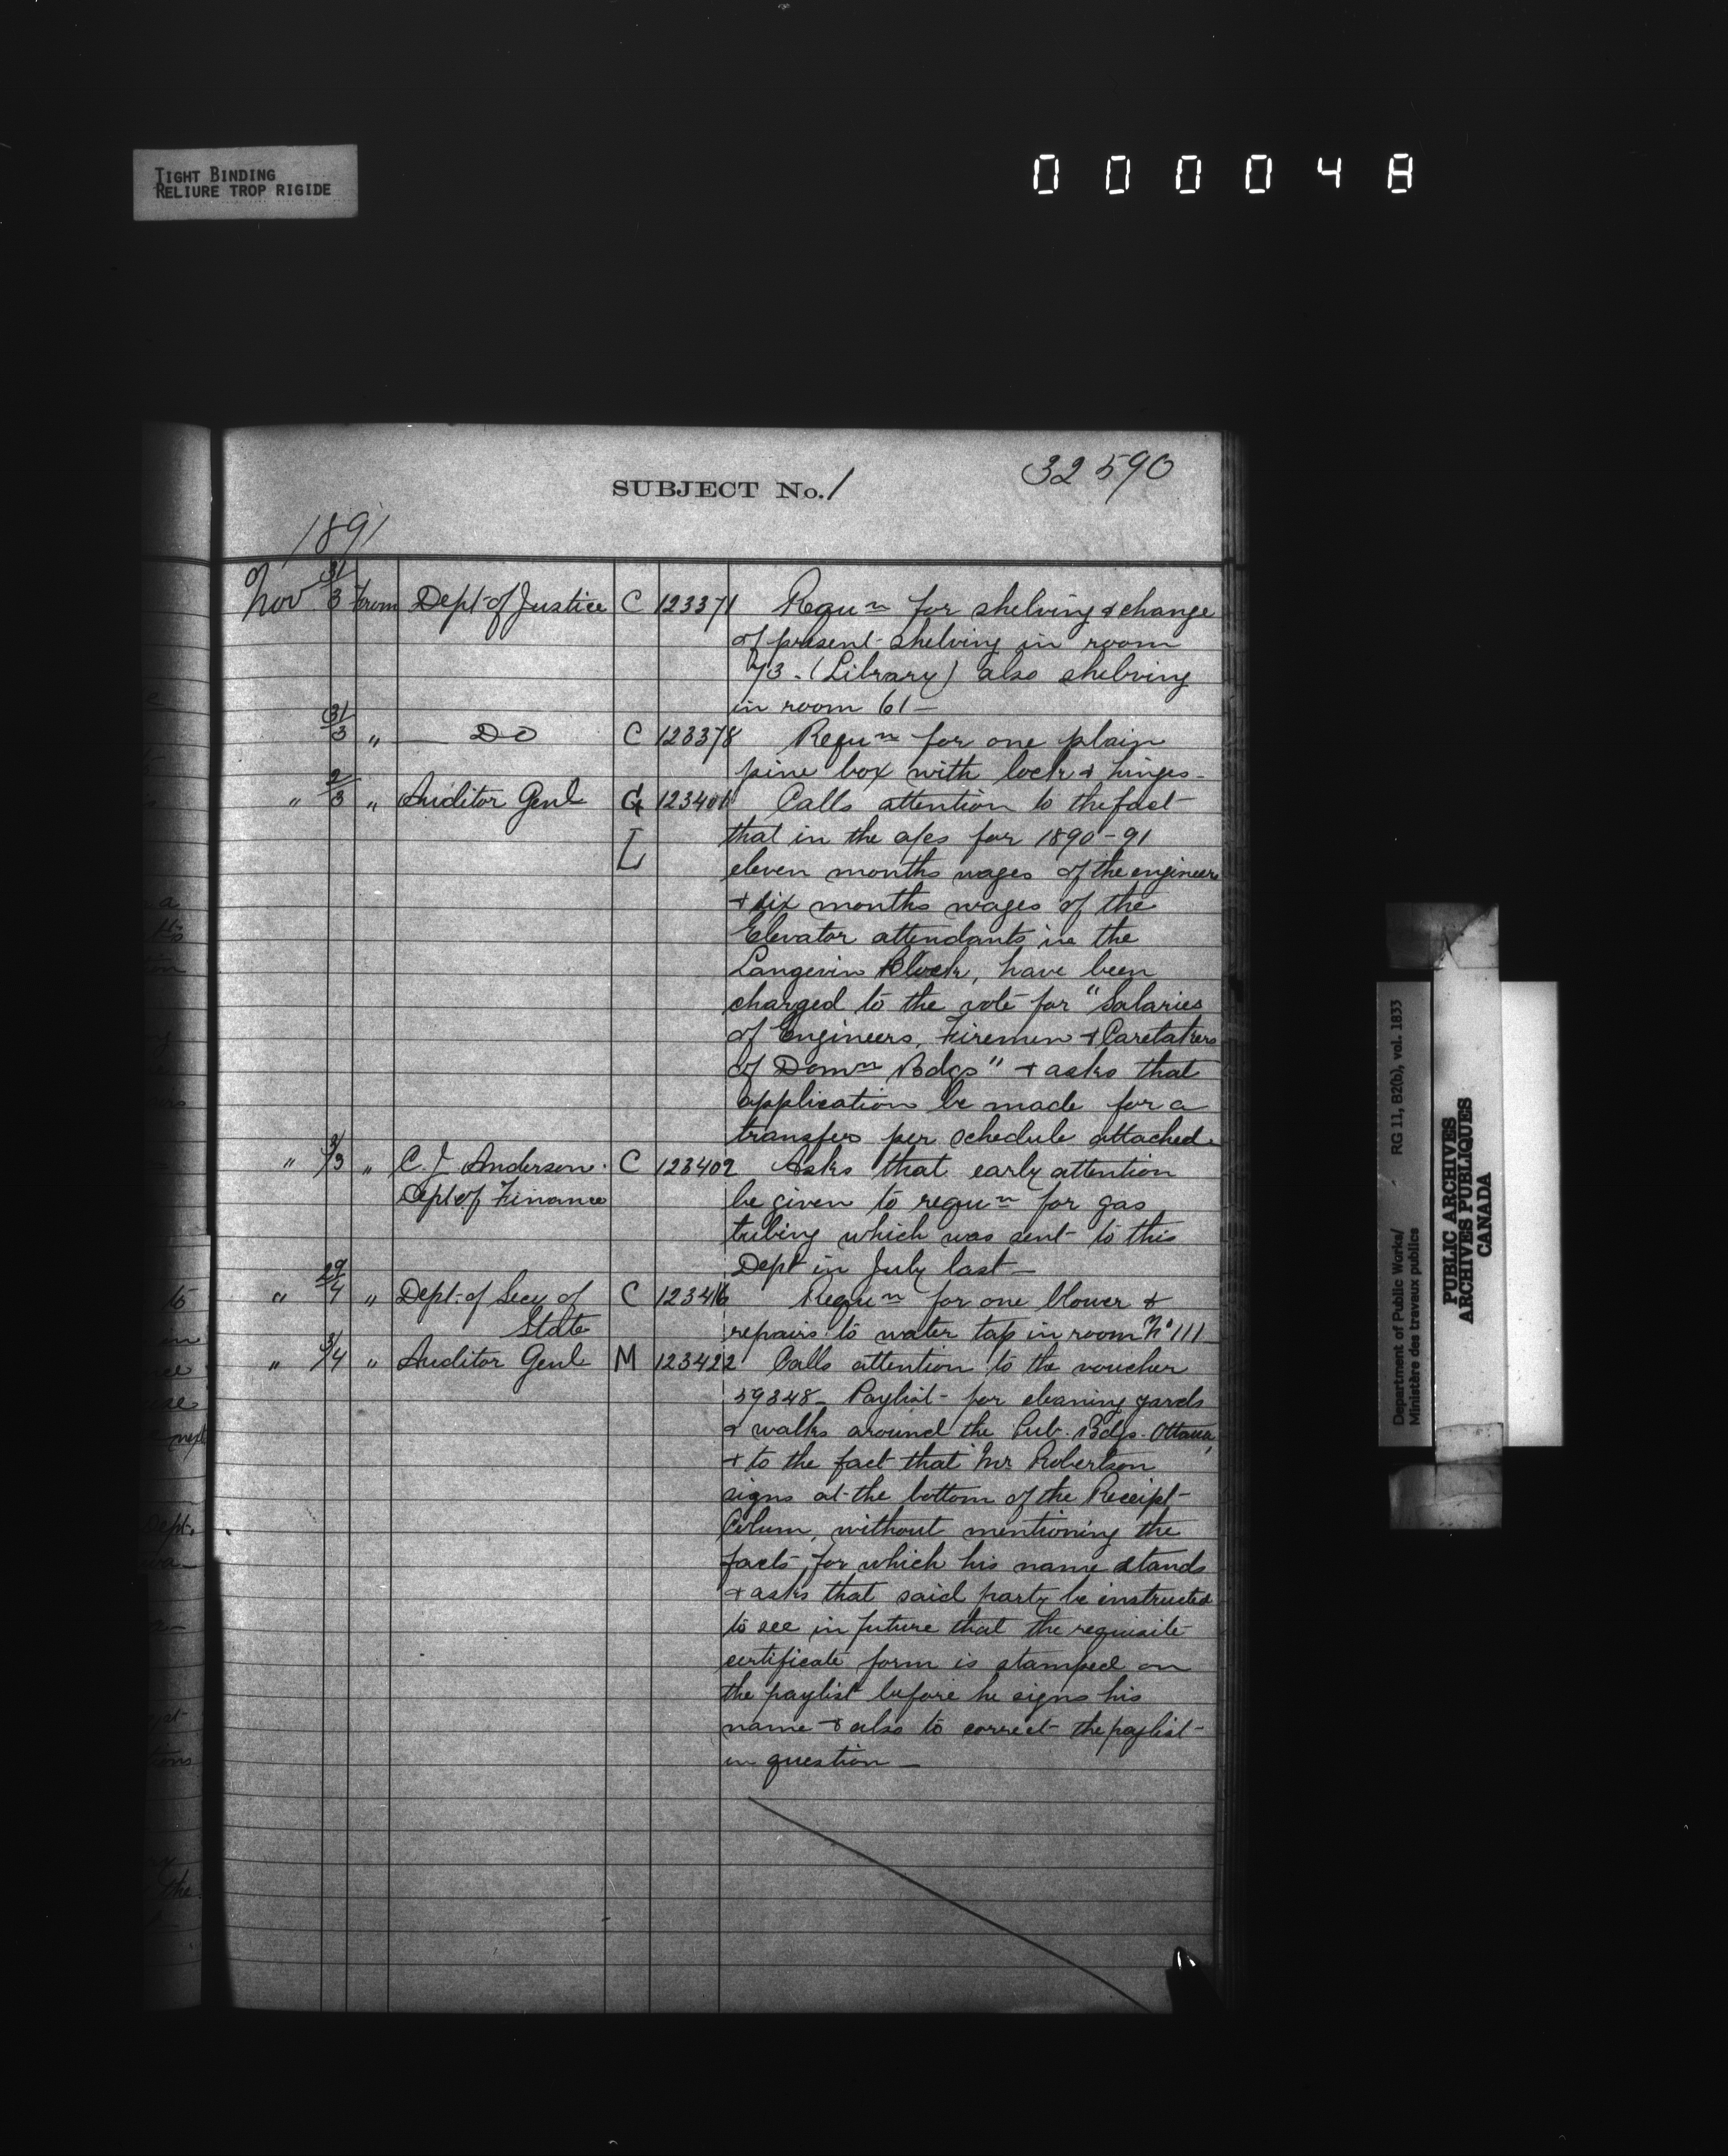 TIGHT BINDING
RELIURE TROP RIGIDE
000048
SUBJECT No. 1
32590
1891
Nov 31/3 From Dept of Justice C 123371 Requn for shelving & change
of present shelving in room
73. (Library) also shelving
in room 61 —
31/3 " Do C 123378 Requn for one plain
pine box with lock & hinges -
" 2/3 " Auditor Genl G 123401 Calls attention to the fact
L that in the a/cs for 1890-91
eleven months wages of the engineers
+ six months wages of the
Elevator attendants in the
Langevin Block, have been
charged to the vote for "Salaries
of Engineers, Firemen + Caretakers
of Domn Bdgs" + asks that
application be made for a
transfer per schedule attached.
" 3/3 " C. J. Anderson. C 123409 Asks that early attention
Dept of Finance be given to requn for gas
tubing which was sent to this
Dept in July last —
" 29/4 " Dept. of Secy of C 123416 Requn for one blower &
State repairs to water tap in room No 111
" 3/4 " Auditor Genl M 123422 Calls attention to the voucher
59348 - Paylist - for cleaning yards
& walks around the Pub. Bdgs. Ottawa,
+ to the fact that Mr Robertson
signs at the bottom of the Receipt
Colum, without mentioning the
facts, for which his name stands
+ asks that said party be instructed
to see in future that the requisite
certificate form is stamped on
the paylist before he signs his
name & also to correct the paylist
in question —
Department of Public Works/ RG 11, B2(b), vol. 1833
Ministère des travaux publics
PUBLIC ARCHIVES
ARCHIVES PUBLIQUES
CANADA